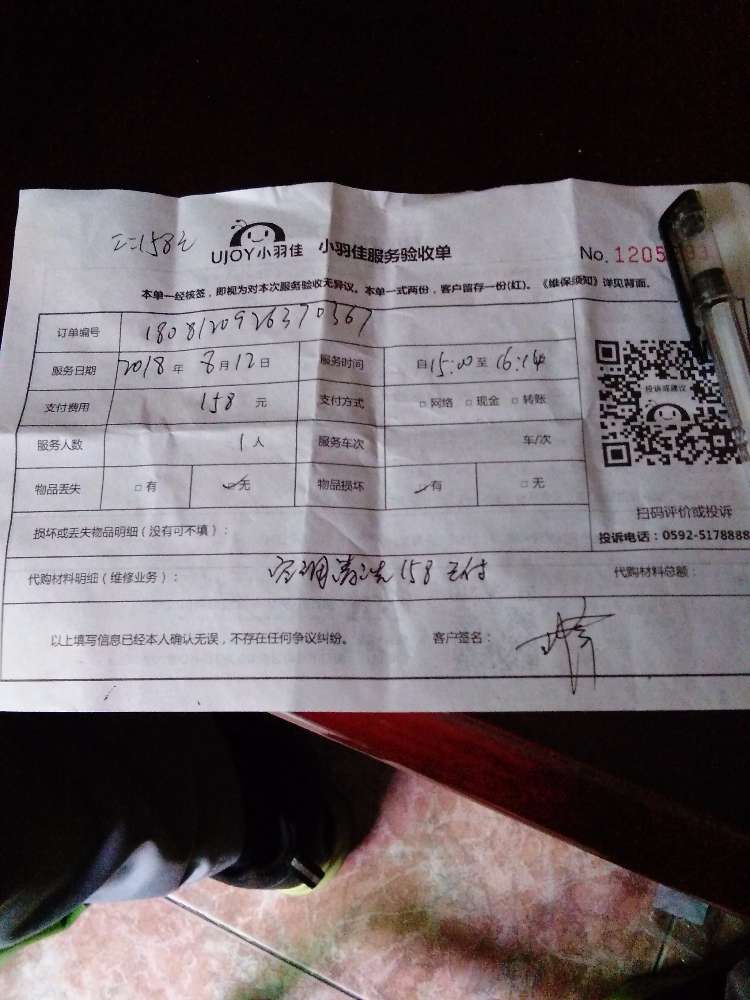 158元
UJOY小羽佳 小羽佳服务验收单 No. 1205
本单一经核签，即视为对本次服务验收无异议。本单一式两份，客户留存一份(红)。《维保须知》详见背面。
订单编号 1808120926370367
服务日期 2018年8月12日 服务时间 自15:00至16:14
投诉或建议
支付费用 158元 支付方式 □网络 □现金 □转账
服务人数 1人 服务车次 车/次
物品丢失 □有 □无 物品损坏 □有 □无
扫码评价或投诉
损坏或丢失物品明细（没有可不填）：
投诉电话：0592-5178888
代购材料明细（维修业务）： 空调清洗158 已付 代购材料总额：
以上填写信息已经本人确认无误，不存在任何争议纠纷。 客户签名：